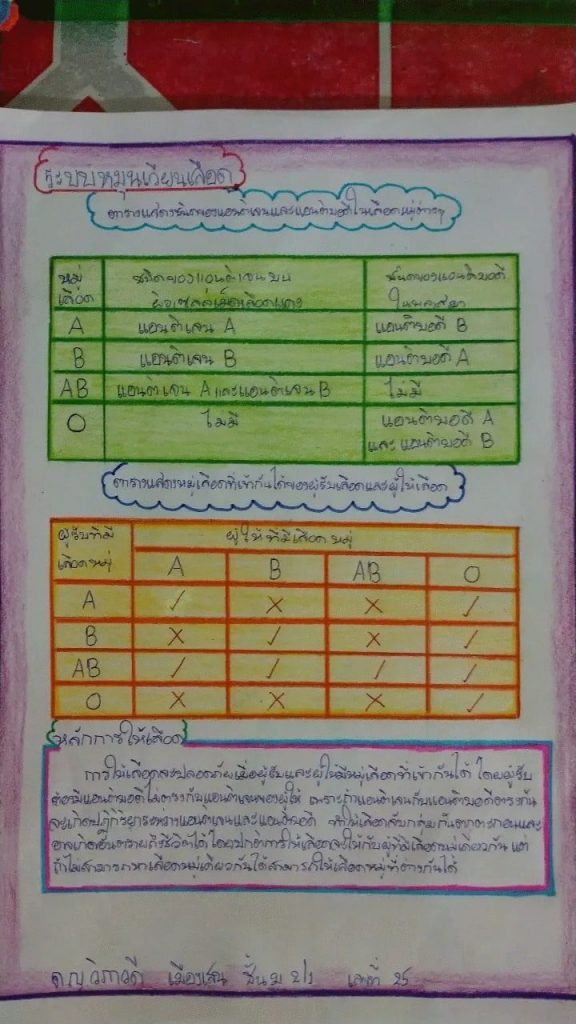 ระบบหมุนเวียนเลือด
ตารางแสดงชนิดของแอนติเจนและแอนติบอดีในเลือดหมู่ต่างๆ
หมู่เลือด ชนิดของแอนติเจนบนผิวเซลล์เม็ดเลือดแดง ชนิดของแอนติบอดีในพลาสมา
A แอนติเจน A แอนติบอดี B
B แอนติเจน B แอนติบอดี A
AB แอนติเจน A และแอนติเจน B ไม่มี
O ไม่มี แอนติบอดี A
และ แอนติบอดี B
ตารางแสดงหมู่เลือดที่เข้ากันได้ของผู้รับเลือดและผู้ให้เลือด
ผู้รับที่มีเลือดหมู่ ผู้ให้ที่มีเลือดหมู่
A B AB O
A ✓ ✗ ✗ ✓
B ✗ ✓ ✗ ✓
AB ✓ ✓ ✓ ✓
O ✗ ✗ ✗ ✓
หลักการให้เลือด
การให้เลือดจะปลอดภัยเมื่อผู้รับและผู้ให้มีหมู่เลือดที่เข้ากันได้ โดยผู้รับ
ต้องมีแอนติบอดีไม่ตรงกับแอนติเจนของผู้ให้ เพราะถ้าแอนติเจนกับแอนติบอดีตรงกัน
จะเกิดปฏิกิริยาระหว่างแอนติเจนและแอนติบอดี ทำให้เลือดจับกลุ่มกันตกตะกอนและ
อาจเกิดอันตรายถึงชีวิตได้ โดยปกติการให้เลือดจะให้กับผู้ที่มีเลือดหมู่เดียวกัน แต่
ถ้าไม่สามารถหาเลือดหมู่เดียวกันได้สามารถให้เลือดหมู่ที่ต่างกันได้
ด.ญ วิภาวดี ชั้น ม 2/1 เลขที่ 25